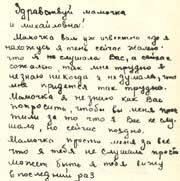 Здравствуй мамочка
и михайловна!
Мамочка вам уж известно где я
нахожусь я очень сейчас жалею
что я не слушала Вас, а сейчас
сожалею, так мне трудно я
не знаю никогда я не думала, что
мне придется так трудно.
Мамочка я не знаю как Вас
попросить чтобы вы меня прос-
тили за то что я Вас не слу-
шала, но сейчас поздно.
Мамочка прости меня за все
что я тебя не слушала прости
может быть я тебя вижу
в последний раз